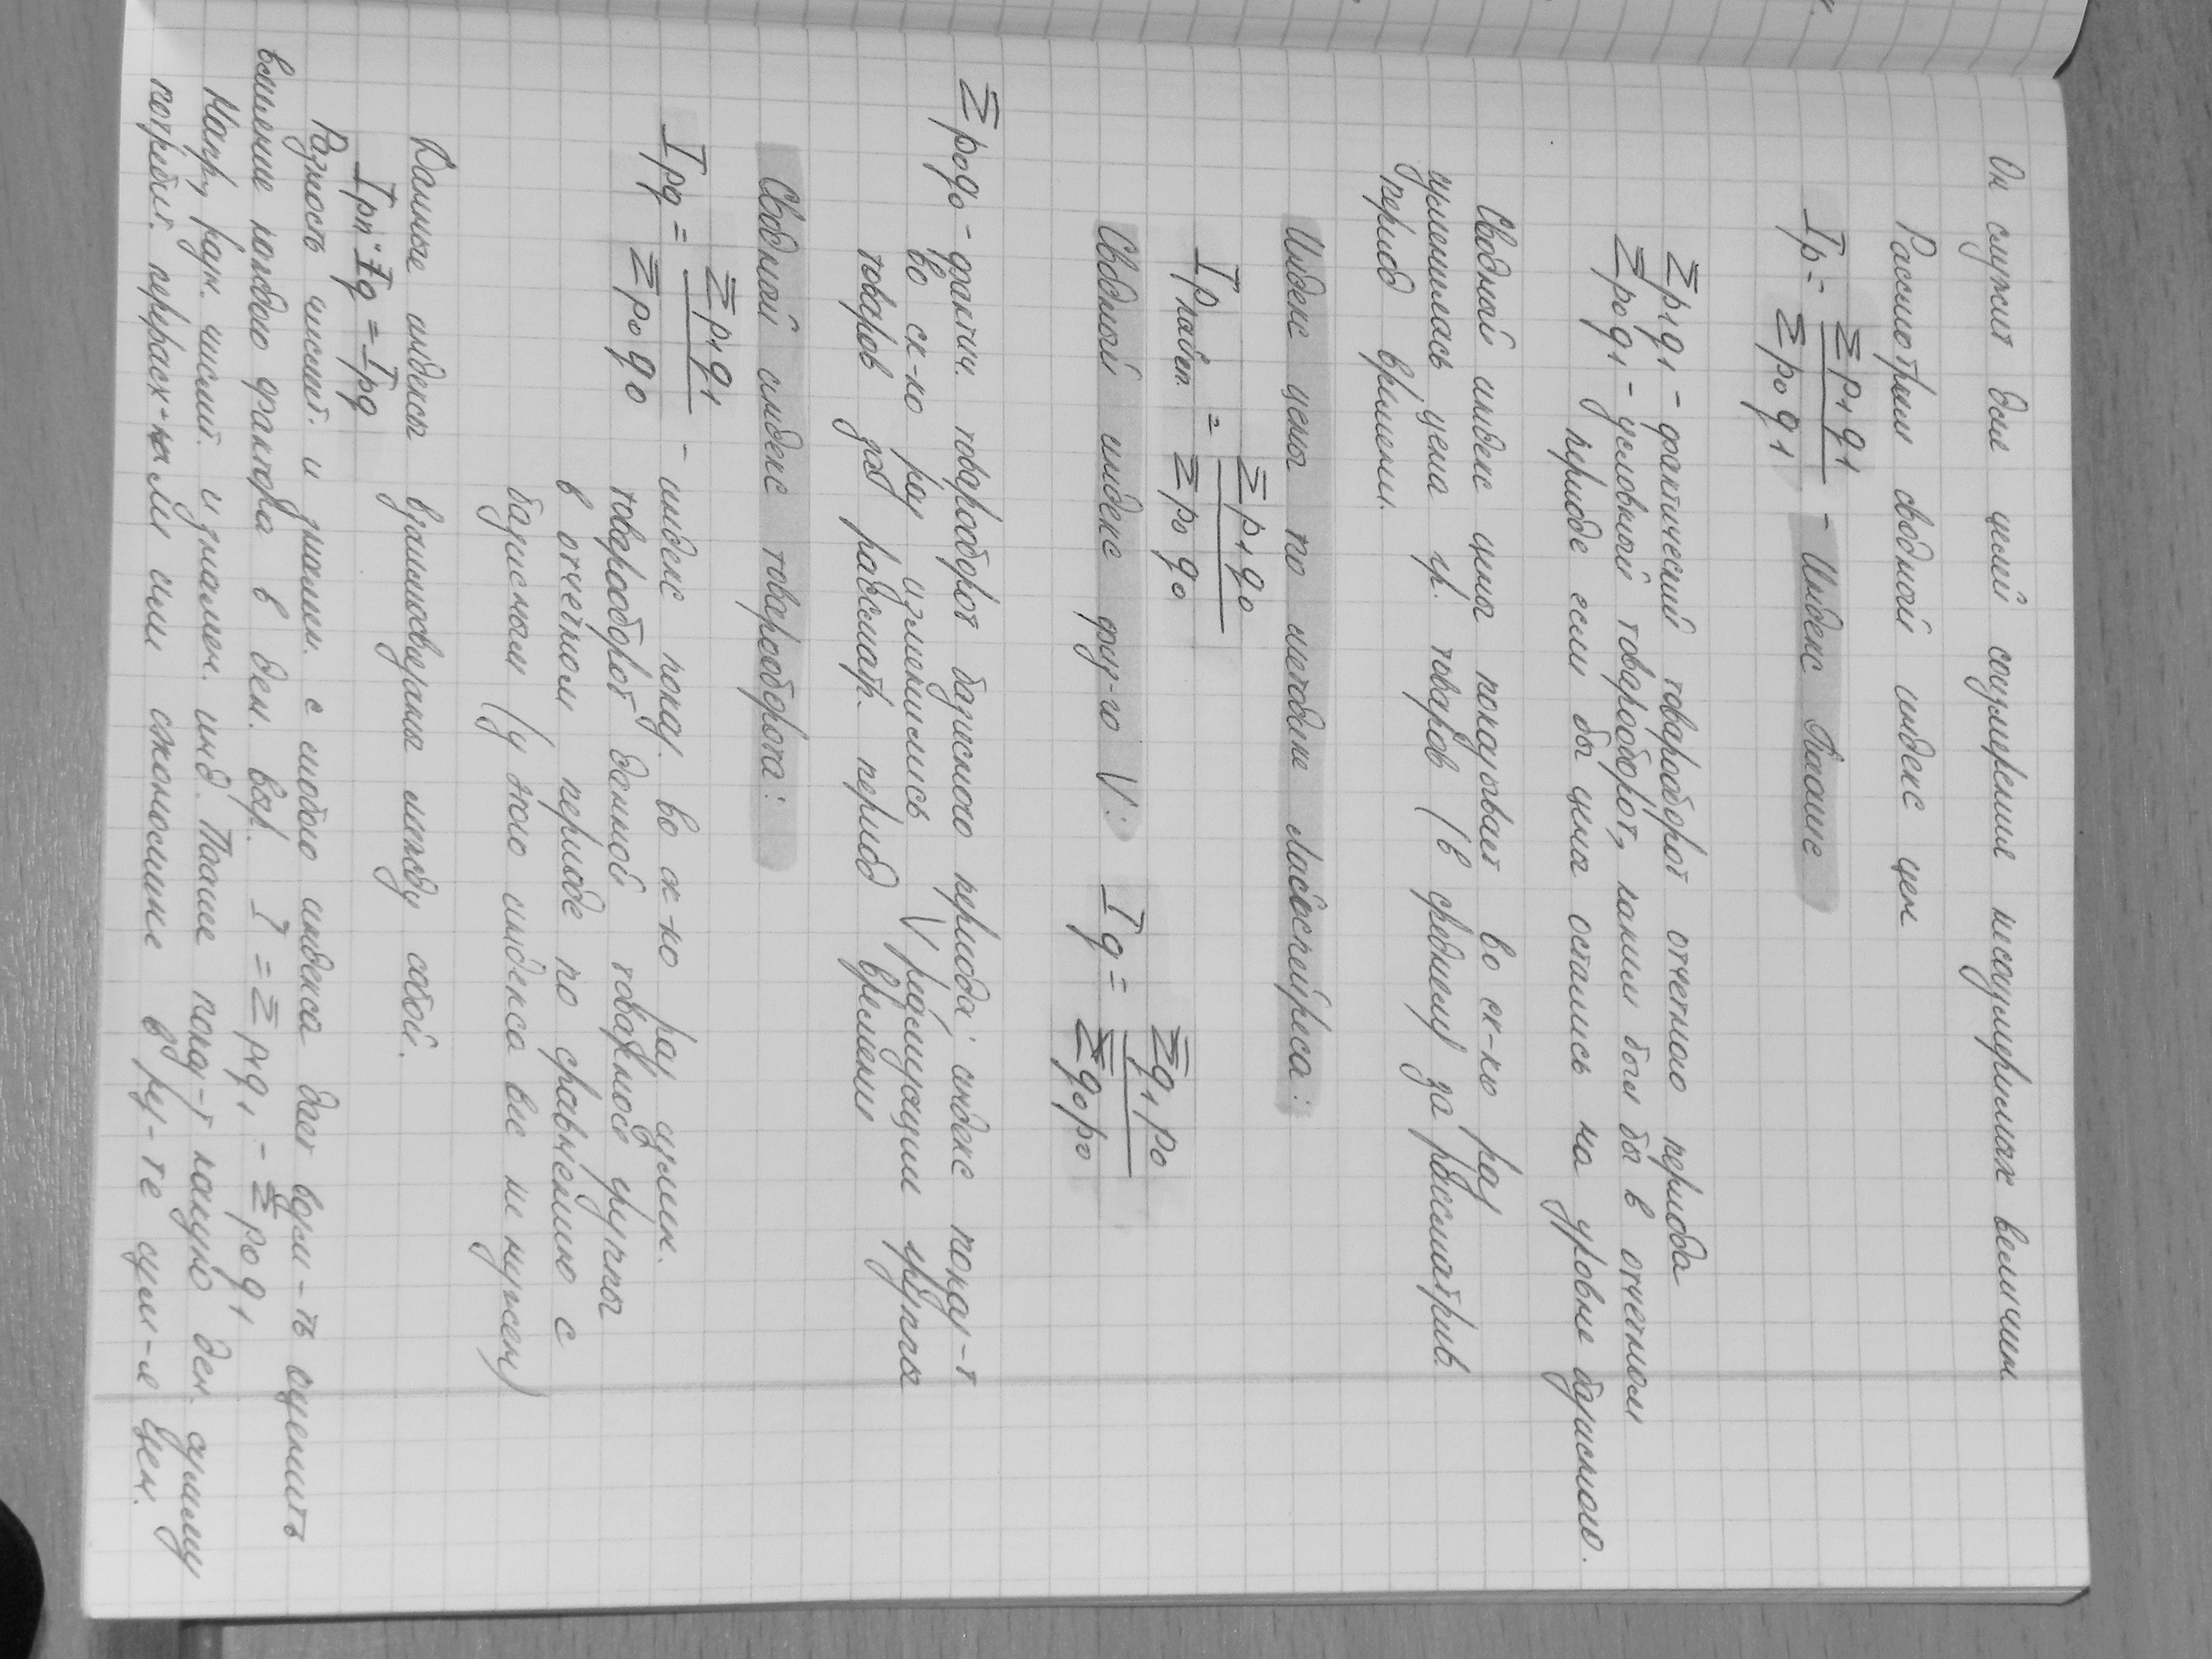 Он служит для целей соизмерения несоизмеримых величин
Рассмотрим сводный индекс цен
Ip = Σp₁q₁ / Σp₀q₁ – Индекс Пааше
Σp₁q₁ – фактический товарооборот отчетного периода
Σp₀q₁ – условный товарооборот, каким был бы в отчетном
периоде если бы цена остались на уровне базисного.
Сводный индекс цены показывает во ск-ко раз
изменилась цена гр. товаров (в среднем) за рассматрив.
период времени.
Индекс цены по методике Ласпейреса:
Ip = Σp₁q₀ / Σp₀q₀
Сводный индекс физ-го V: Iq = Σq₁p₀ / Σq₀p₀
Σp₀q₀ – фактич. товарооборот базисного периода; индекс показ-т
во ск-ко раз изменились V реализации группы
товаров за рассматр. период времени
Сводный индекс товарооборота:
Ipq = Σp₁q₁ / Σp₀q₀ – индекс показ. во ск-ко раз измен.
товарооборот данной товарной группы
в отчетном периоде по сравнению с
базисным (у этого индекса вес не нужен)
Данные индексы взаимосвязаны между собой.
Ipп · Iq = Ipq
Разность числит. и знамен. с любого индекса дает возм-ть оценить
влияние каждого фактора в ден. выр. I = Σp₁q₁ – Σp₀q₁
Напр, разн. числит. и знамен. инд. Пааше показ-т какую ден. сумму
потребит. перерасх-ли или сэкономили в рез-те изм-я цен.